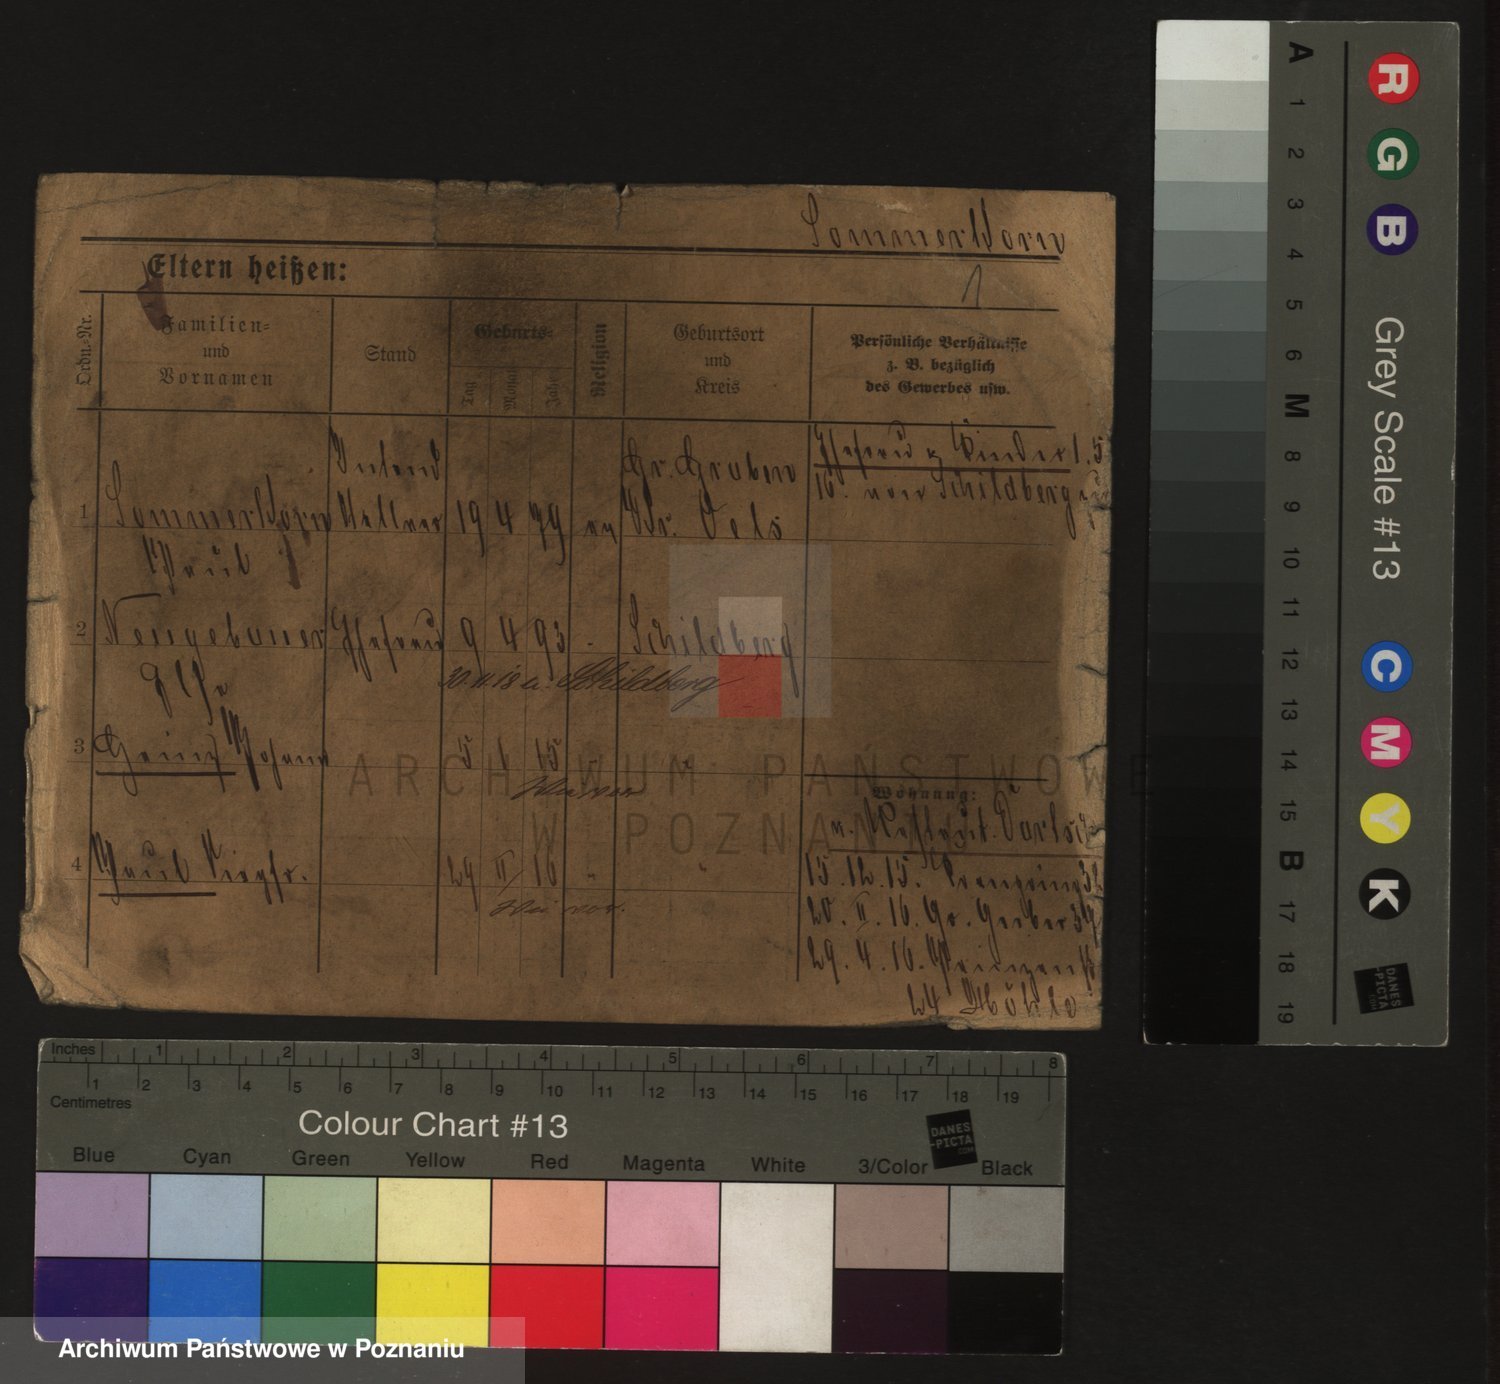 Sommerkorn
Eltern heißen:
1
Ordn.-Nr.
Familien-
und
Vornamen
Stand
Geburts-
Tag
Monat
Jahr
Religion
Geburtsort
und
Kreis
Persönliche Verhältnisse
z. B. bezüglich
des Gewerbes usw.
Ehefrau u Kinder 1. 5
16. von Schildberg
1 Sommerkorn Kellner 19 4 79 ev Gr. Graben Kr. Oels
Paul
2 Neugebauer Ehefrau 9 4 93 - Schildberg
Else
30.11.18 a. Schildberg
3 Heinz Johann 5 1 15 "
Wie vor
4 Paul 24 II 16 " "
Wie vor.
Wohnung:
15.12.15.
20. II. 16. Gr. Gerber 39
29. 4. 16.
24
ARCHIWUM PAŃSTWOWE
W POZNANIU
Inches 1 2 3 4 5 6 7 8
1 2 3 4 5 6 7 8 9 10 11 12 13 14 15 16 17 18 19
Centimetres
Colour Chart #13
DANES
-PICTA
.COM
Blue Cyan Green Yellow Red Magenta White 3/Color Black
Archiwum Państwowe w Poznaniu
A 1 2 3 4 5 6 M 8 9 10 11 12 13 14 15 B 17 18 19
R G B
Grey Scale #13
C M Y K
DANES
-PICTA
.COM